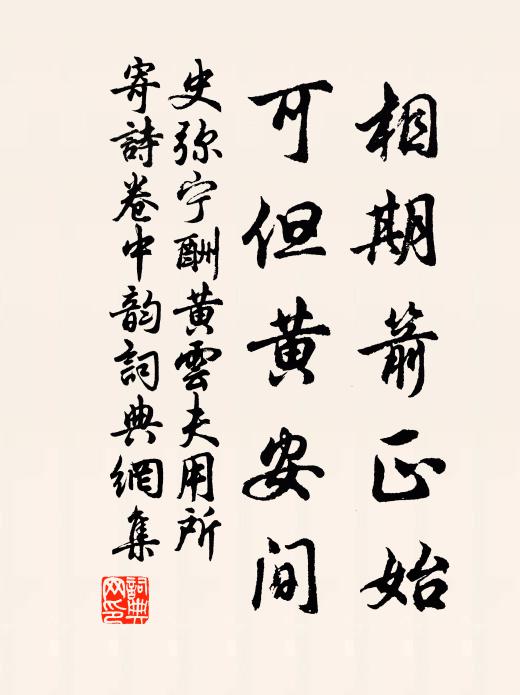 相期箭正始
可但黄安间
史弥宁酬黄雲夫用所
寄詩卷中韵詞典網集
詞典網印